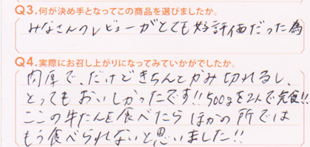 Q3.何が決め手となってこの商品を選びましたか。
みなさんのレビューがとても好評価だった為
Q4.実際にお召し上がりになってみていかがでしたか。
肉厚で、だけどきちんとかみ切れるし、
とってもおいしかったです!!500gを2人で完食!!
ここの牛たんを食べたらほかの所では
もう食べられないと思いました!!